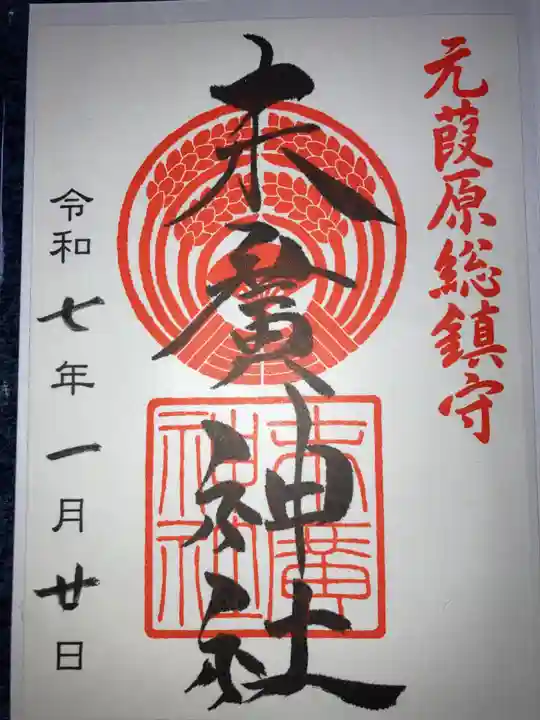 元葭原総鎮守
末廣神社
末廣
神社
令和七年一月廿日